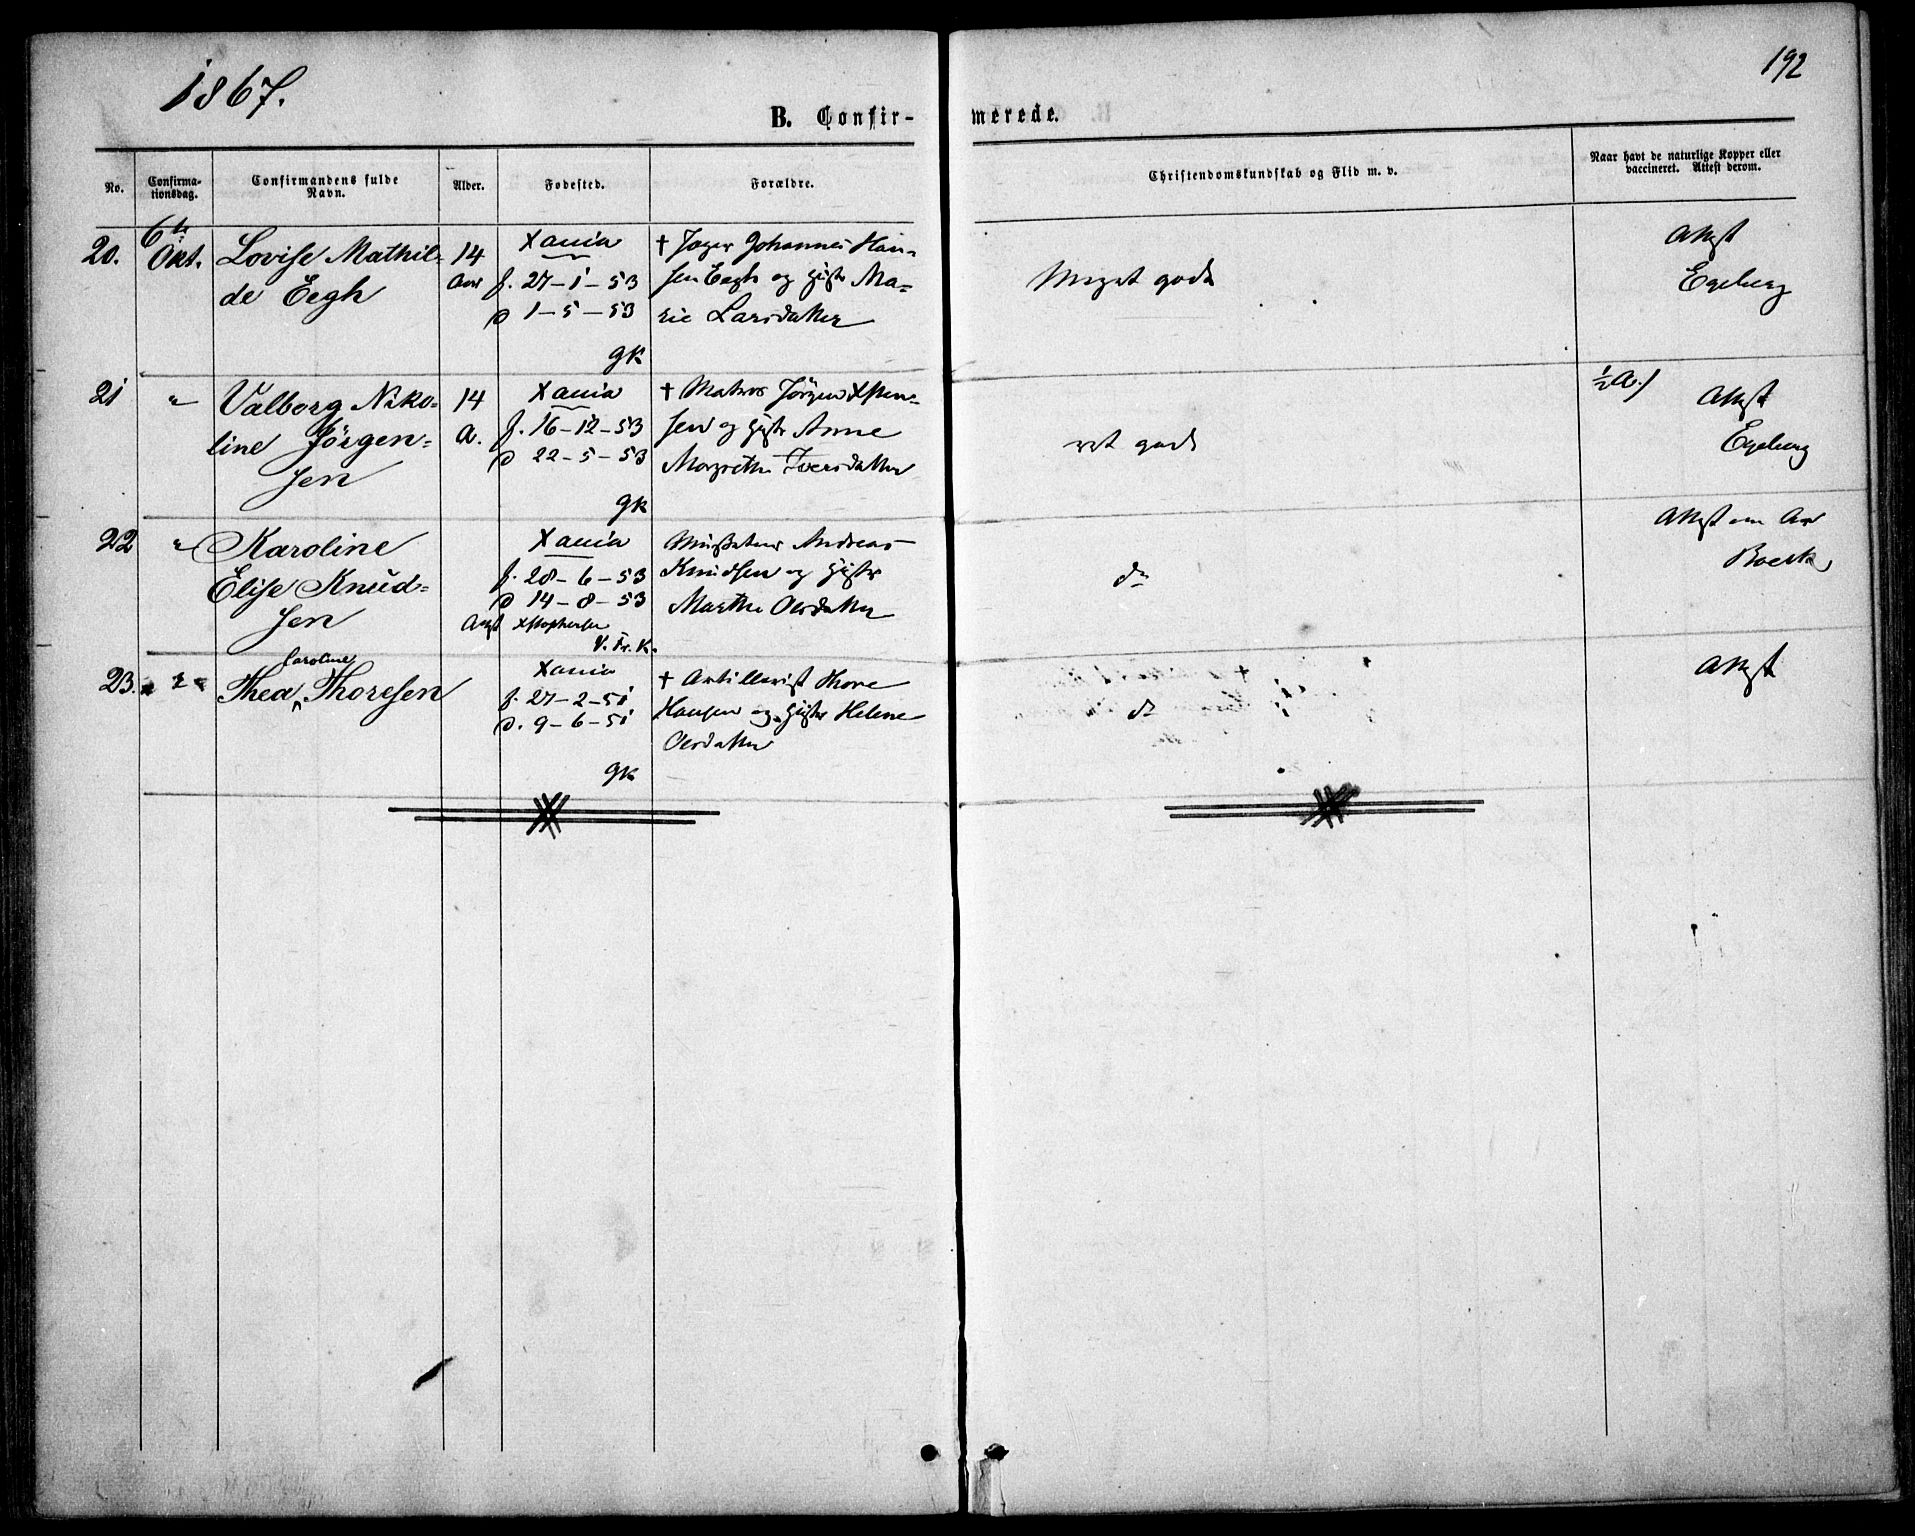 1867.
192
B. Confir-
merede.
No.
Confirma-
tionsdag.
Confirmandens fulde
Navn.
Alder.
Fødested.
Forældre.
Christendomskundskab og Flid m. v.
Naar havt de naturlige Kopper eller
vaccineret. Attest derom.
20.
6te
Okt.
Lovise Mathil-
de Eegh
14
Aar
Xania
f. 27-1-53
d 1-5-53
gk
† Jæger Johannes Han-
sen Eegh og Hustr Ma-
rie Larsdatter
Meget godt
Attest
Egeberg
21
"
Valborg Niko-
line Jörgen-
sen
14
A.
Xania
f. 16-12-53
d 22-5-53
gk
† Matros Jörgen Xsten-
sen og Hustr Anne
Margrethe Iversdatter
ret godt
½ A.)
Attest
Egeberg
22
"
Karoline
Elise Knud-
sen
Xania
f. 28-6-53
d 14-8-53
Attest Xstophersen
V. Fr. K.
Andreas
Knudsen og Hustr
Marthe Olsdatter
do
Attest
Boeck
23.
"
Thea Caroline Thoresen
Xania
f. 27-2-51
d. 9-6-51
gk
† Artillerist Thore
Hansen og Hustr Helene
Olsdatter
do
Attest